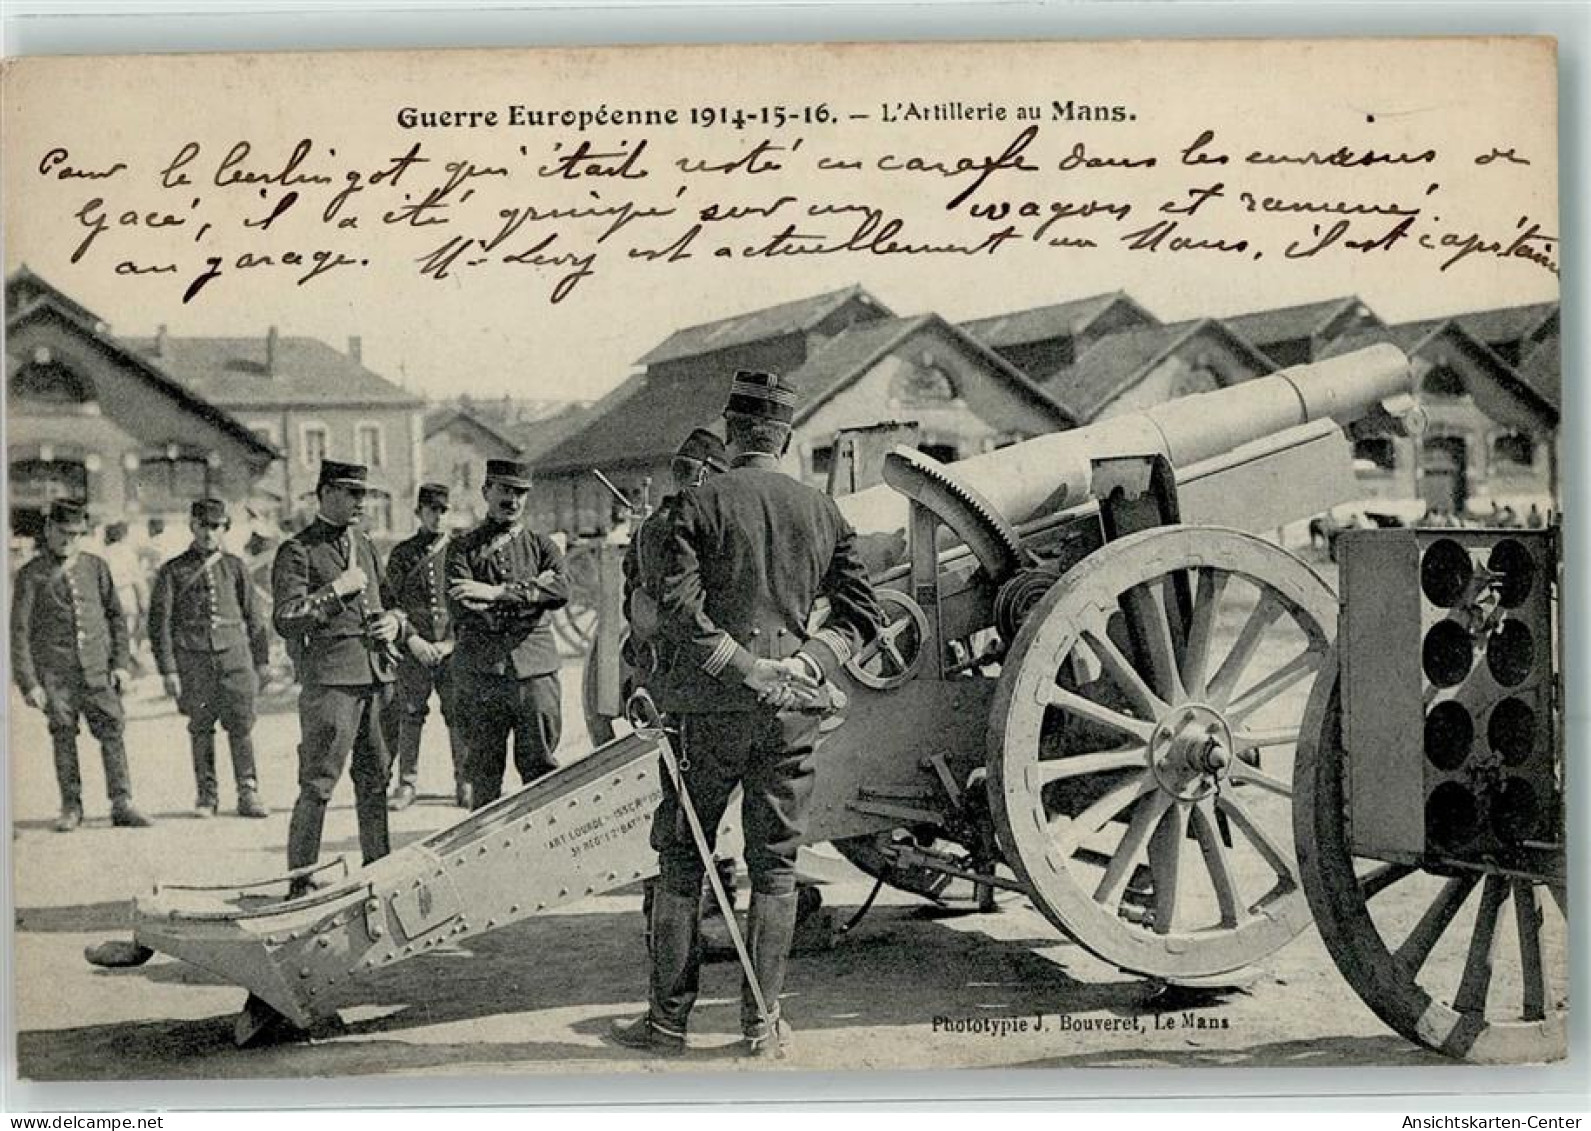 Guerre Européenne 1914-15-16. — L'Artillerie au Mans.
Pour le berlingot qui était resté en carafe dans les environs de
Gacé, il a été grimpé sur un wagon et ramené
au garage. Mr Levy est actuellement au Mans, il est capitaine
ART LOURDE
3e REGt 2e BATie
Phototypie J. Bouveret, Le Mans
oldthing.de
Ansichtskarten-Center